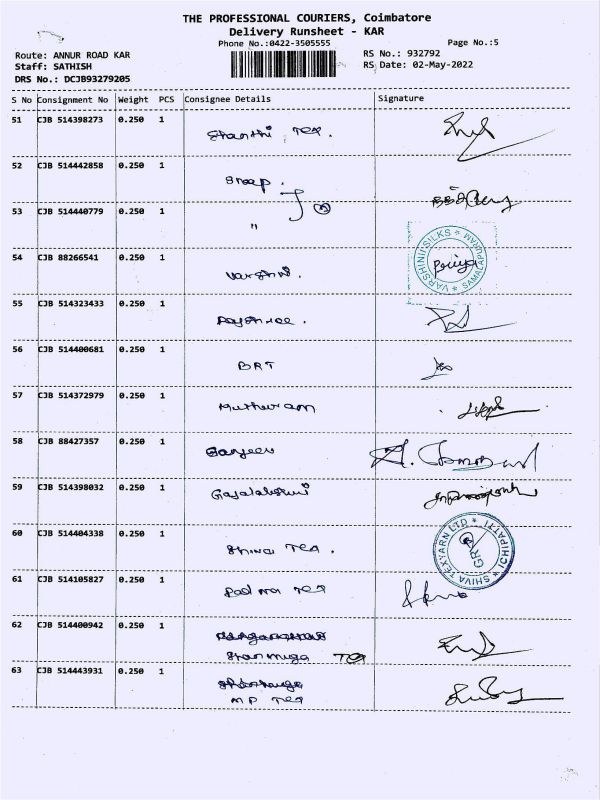 THE PROFESSIONAL COURIERS, Coimbatore
Delivery Runsheet - KAR
Phone No.:0422-3505555
Page No.:5
Route: ANNUR ROAD KAR
RS No.: 932792
Staff: SATHISH
RS Date: 02-May-2022
DRS No.: DCJB93279205
S No Consignment No Weight PCS Consignee Details Signature
51 CJB 514398273 0.250 1 Shanthi Tex.
52 CJB 514442858 0.250 1
53 CJB 514440779 0.250 1 "
54 CJB 88266541 0.250 1 Varshni. Priya
VARSHINI SILKS * SAMALAPURAM *
55 CJB 514323433 0.250 1 Rajshree.
56 CJB 514400681 0.250 1 BRT
57 CJB 514372979 0.250 1
58 CJB 88427357 0.250 1 Sanjeev
59 CJB 514398032 0.250 1 Gajalakshmi
60 CJB 514404338 0.250 1 Shiva Tex.
SHIVA TEXYARN LTD * ICHIPATTI *
61 CJB 514105827 0.250 1 Padma Tex
62 CJB 514400942 0.250 1
Shanmuga Tex
63 CJB 514443931 0.250 1
MP Tex